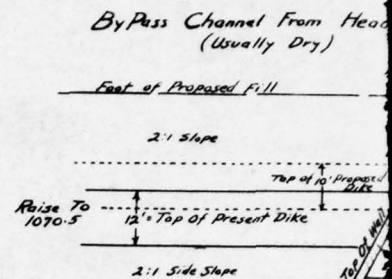 ByPass Channel From Head
(Usually Dry)
Foot of Proposed Fill
2:1 Slope
Top of 10' Proposed
Dike
Raise To
1070.5
12'= Top Of Present Dike
Top Of Wall
2:1 Side Slope